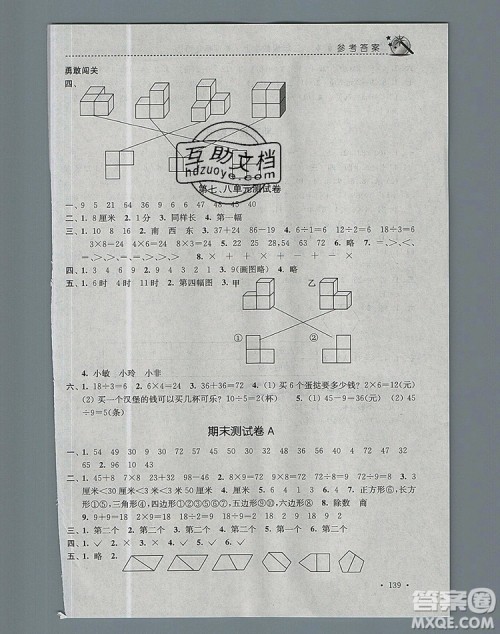 参考答案
勇敢闯关
四、
互助文档
hdzuoye.com
第七、八单元测试卷
一、9 5 21 64 36 45 48 45 40
二、1. 8厘米 2. 1分 3. 同样长 4. 第一幅
三、1. 10 8 16 2. 南 西 东 3. 37+24 86-19 4. 6÷1=6 12÷2=6
3×8=24 4×6=24 5. 36 18 72 18 15 7 6. 略 7.
8. × + + - + ÷ ×
四、1. 2. 3 3. 4 4. 3 5. 9(画图略)
五、1. 6时 4时 11时 2. 第四幅图 3. 甲 乙
① ②
4. 小敏 小玲 小非
六、1. 18÷3=6 2. 6×4=24 3. 36+36=72 4. (1) 买6个蛋挞要多少钱? 2×6=12(元)
(2) 买一个汉堡的钱可以买几杯可乐? 18÷9=2(杯) 5. (1) 45-9=36(条) (2)
45÷9=5(条)
期末测试卷A
一、1. 54 49 30 27 23 12 45 50 16 24 56 31 74 38 44 32
65 2. 96 10
二、1. 4+8 2×9 7+23 32+98 -4 2. 8×9=72 9×8=72 72÷8=9 72÷9=8
3. 厘米 米 厘米 厘米 米 4. 3厘米<30厘米<3米 5. 18 7 6. 正方形⑥,长方
形①,三角形④,四边形①②⑥,五边形③ 7. 0 6 9 8. 除数 商
9. 9+9=18 2×9=18 10. 18 2 9 11. 2
三、1. 第二个 2. 第二个 3. 第二个 4. 第二个 5. 第一个 6. 第二个
四、1. ✓ 2. ✓ 3. × 4. ✓ 5. × 6. ✓
五、1. 略 2.
· 139 ·
答案圈
MXQE.COM